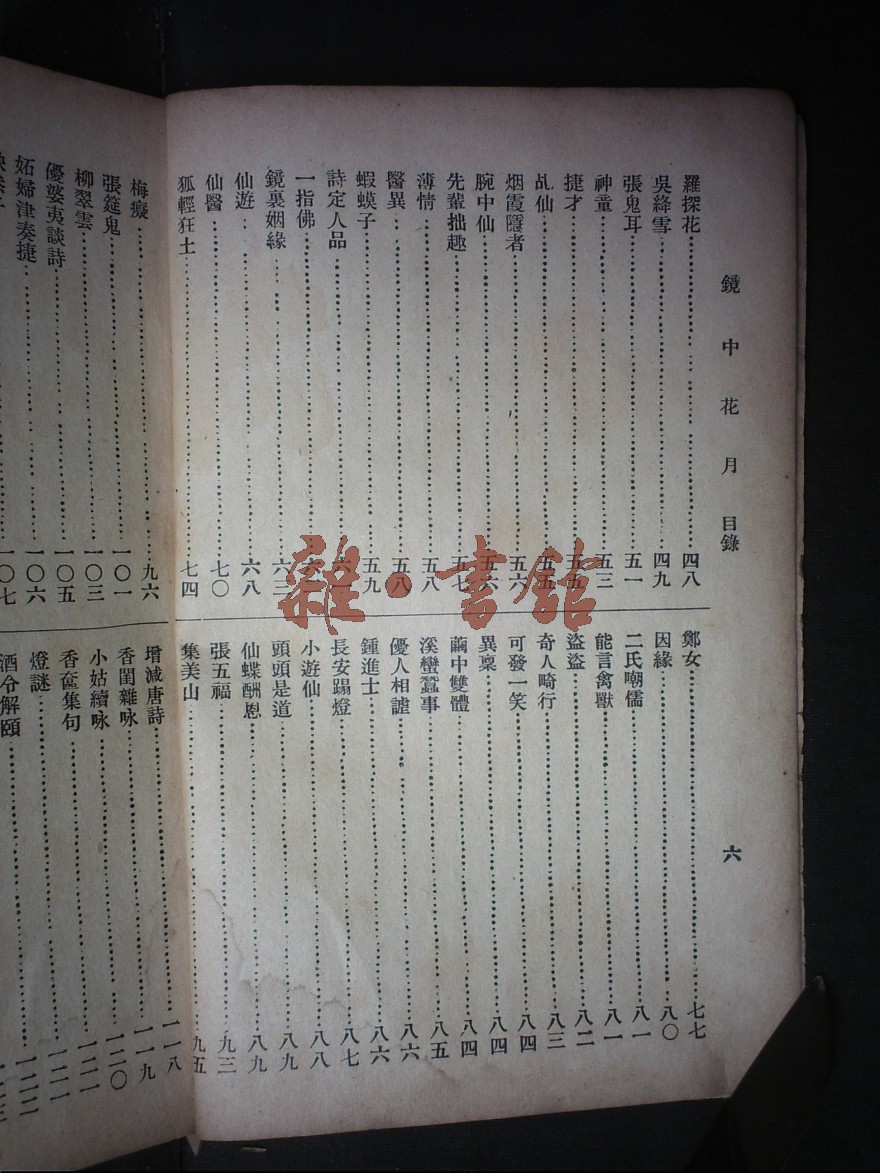 鏡中花月 目錄
六
羅探花 四八
吳絳雪 四九
張鬼耳 五一
神童 五三
捷才 五五
乩仙 五五
烟霞隱者 五六
腕中仙 五六
先輩拙趣 五七
薄情 五八
醫異 五八
蝦蟆子 五九
詩定人品
一指佛
鏡裏姻緣 六三
仙遊 六八
仙醫 七〇
狐輕狂士 七四
鄭女 七七
因緣 八〇
二氏嘲儒 八一
能言禽獸 八一
盜盜 八二
奇人畸行 八三
可發一笑 八四
異稟 八四
繭中雙體 八四
溪蠻蠶事 八五
優人相謔 八六
鍾進士 八六
長安蹋燈 八七
小遊仙 八八
頭頭是道 八九
仙蝶酬恩 八九
張五福 九三
集美山 九五
梅癡 九六
張筵鬼 一〇一
柳翠雲 一〇三
優婆夷談詩 一〇五
妬婦津奏捷 一〇六
一〇七
增減唐詩 一一八
香閨雜咏 一一九
小姑續咏 一二〇
香奩集句 一二一
燈謎 一二二
酒令解頤
雜·書館